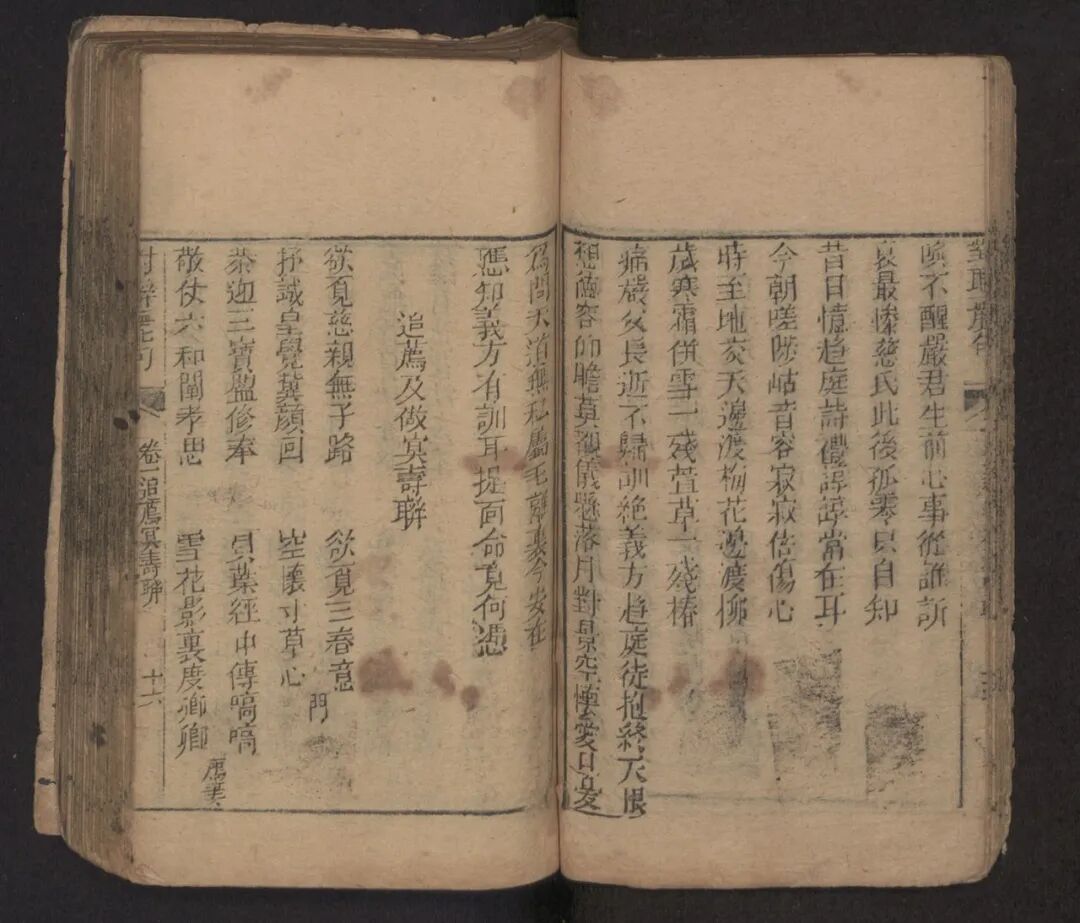 喚不醒嚴君生前心事從誰訴
哀最慘慈氏此後孤零只自知
昔日憶趋庭詩禮諄諄常在耳
今朝嗟陟岵音容寂寂倍傷心
時至地亥天邊渡梅花邊渡柳
歲寒霜併雪一殘萱草一殘椿
痛嚴父長逝不歸訓絶義方趋庭徒抱終天恨
想德容仰瞻莫覩儀懸落月對景空懷愛日
為問天道無私屬毛離裏今安在
應知義方有訓耳提面命覓何憑
追薦及做冥壽聨
欲覓慈親無子路 欲覓三春意
拯誠皇覺冀顔回 空懷寸草心
門
恭迎三寶盬修奉 貝葉經中傳嗃嗃
敬仗六和闡孝思 雪花影裏度卿卿
薦妻
卷一追薦冥壽聨 十六